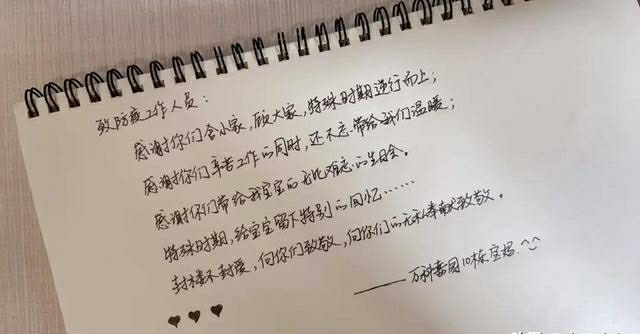 致防疫工作人员：
感谢你们舍小家，顾大家，特殊时期逆行而上；
感谢你们辛苦工作的同时，还不忘带给我们温暖；
感谢你们带给我宝宝的无比难忘的生日会。
特殊时期，给宝宝留下特别的回忆……
封楼不封爱，向你们致敬，向你们的无私奉献致敬。
——万科 园10栋宝妈.^^
♥♥♥